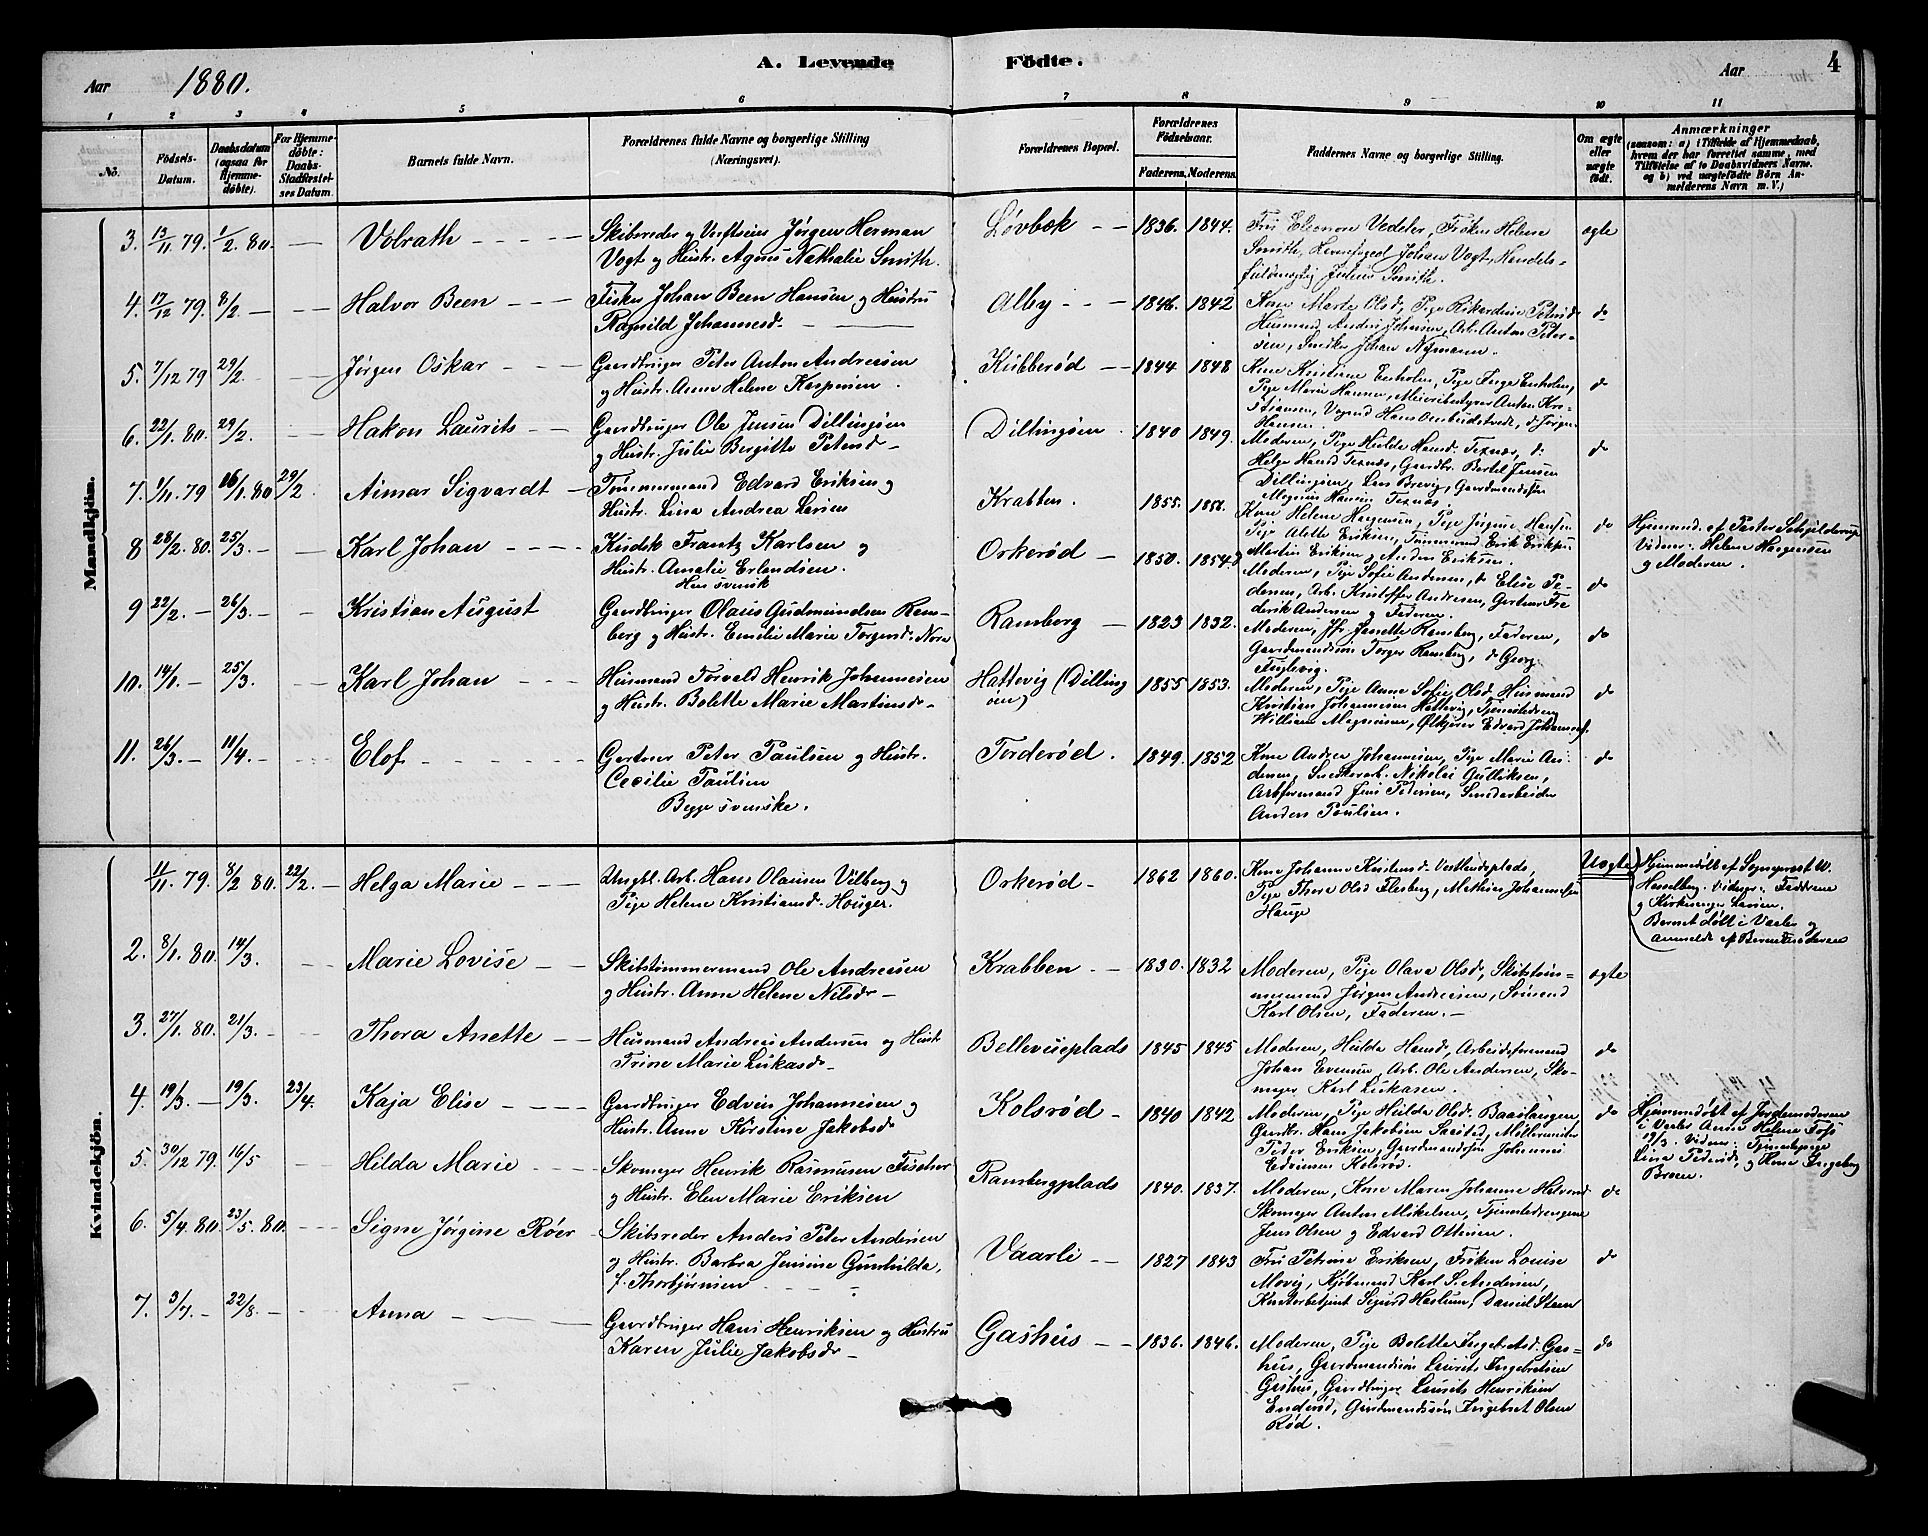 Aar 1880.
A. Levende Födte.
Aar 4
1 2 3 4 5 6 7 8 9 10 11
No.
Födsels-Datum.
Daabsdatum (ogsaa for Hjemme-döbte).
For Hjemme-döbte: Daabs-Stadfæstel-ses Datum.
Barnets fulde Navn.
Forældrenes fulde Navne og borgerlige Stilling (Næringsvei).
Forældrenes Bopæl.
Forældrenes Födselsaar.
Faderens. Moderens.
Faddernes Navne og borgerlige Stilling.
Om ægte eller uægte födt.
Anmærkninger
(saasom: a) i Tilfælde af Hjemmedaab, hvem der har forrettet samme, med Tilföielse af to Daabsvidners Navne. og b) ved uægtefödte Börn An-melderens Navn m. V.)
Mandkjön.
3. 13/11 79. 1/2. 80. — Volrath
Skibsreder og Verftseier Jørgen Herman
Vogt og Hustr. Agnes Nathalie Smith.
Løvbæk — 1836. 1844.
Fru Eleonore Vedeler, Frøken Helene
Smith, Johan Vogt, Handels-
fuldmægtig Julius Smith.
ægte
4. 17/12 79. 8/2. — — Halvor Been
Fisker Johan Been Hansen og Hustru
Ragnild Johannesd.
Alby — 1846. 1842
Kone Marte Olsd, Pige Rikardine Petersd
Husmand Anders Johnsen, Arb. Anton Peter-
sen, Snedker Johan Nymann.
do
5. 7/12 79 29/2. — Jørgen Oskar
Gaardbruger Peter Anton Andreasen
og Hustr. Anne Helene Kaspersen.
Kubberød — 1844 1848
Kone Kristiane Enholm, Pige Inga Enholm,
Pige Marie Hansen, Meieribestyrer Anton Kri-
stiansen, Hans Ombudstvedt, do Jørgen
Hansen.
do
6. 22/1. 80. 29/2. — Hakon Laurits
Gaardbruger Ole Jensen Dillingøen
og Hustr. Julie Bergitte Petersd
Dillingøen. 1840 1849.
Moderen, Pige Hulda Hansd. Texnæs, do
Helga Hansd Texnæs, Gaardbr. Bertel Jensen
Dillingøen, Lars Brevig, Gaardmandssøn
Magnus Hansen Texnæs
do
7. 1/11. 79 16/1. 80 29/2. Aimar Sigvardt
Tømmermand Edvard Eriksen og
Hustr. Lina Andrea Larsen
Krabben. 1855. 1856.
Kone Helene Hagensen, Pige Jørgine Hansen
Pige Alette Eriksen, Tømmermand Erik Eriksen
Martin Eriksen og Anders Eriksen.
do
Hjemmed. af Pastor Schjelderup
Vidner: Helene Hagensen
og Moderen.
8 28/2. 80. 25/3. — Karl Johan
Kudsk Frantz Karlsen og
Hustr. Amalie Erlandsen.
Hun svensk
Orkerød — 1850. 1854.
Moderen, Pige Sofie Andersen, do Elise Pe-
dersen, Arb. Kristoffer Andersen, Gartner Fre
derik Andersen og Faderen.
do
9 22/2. — 26/3. — Kristian August
Gaardbruger Olaus Gudmundsen Ram-
berg og Hustr. Emilie Marie Torgersd. Nore
Ramberg — 1823 1832.
Moderen, Jfr. Janette Ramberg, Faderen,
Gaardmandssøn Torger Ramberg, do Georg
Fuglevig.
do
10. 14/1. — 25/3. — Karl Johan
Husmand Torvald Henrik Johannesen
og Hustr. Bolette Marie Martinsd.
Hattevig (Dilling
øen) 1855 1853.
Moderen, Pige Anne Sofie Olsd, Husmand
Kristian Johannesen Hattevig, Tjenestedreng
William Magnusen, Ølkjører Edvard Johannesen.
do
11. 26/3. — 11/4. — Elof
Gartner Peter Paulsen og Hustr.
Cecilie Paulsen
Begge svenske.
Torderød. 1849. 1852
Kone Andrea Johannesen, Pige Marie An-
dersen, Snedkerarb. Nikolai Gulliksen,
Arbformand Jens Pedersen,
Anders Paulsen.
do
Kvindekjön.
11/11. 79. 8/2 80. 22/2. Helga Marie
Ungkl. Arb. Hans Olausen Vilberg og
Pige Helene Kristiansd. Houger.
Orkerød — 1862 1860.
Kone Johanne Knutsend Vestlundsplads,
Pige Thora Olsd Flesberg, Mathias Johannesen
Hauge
Uægte
Hjemmedøbt af Sognepræst W.
Hasselberg. Vidner: Fadderne
og Kirkesanger Larsen.
Barnet døbt i Vaaler og
anmeldt af Barnefaderen
2. 8/1. 80. 14/3. — Marie Lovise
Skibstømmermand Ole Andreasen
og Hustr. Anne Helene Nilsdr
Krabben. — 1830. 1832
Moderen, Pige Olava Olsd, Skibstøm-
mermand Jørgen Andreasen, Sømand
Karl Olsen, Faderen.
ægte
3. 27/1. 80. 21/3. — Thora Anette
Husmand Andreas Andersen og Hustr
Trine Marie Lukasdr
Bellevueplads 1845 1845
Moderen, Hulda Hansd, Arbeidsformand
Johan Evensen, Arb. Ole Andersen, Sko-
mager Karl Lukasen.
do
4. 19/3. — 19/3. 23/4. Kaja Elise
Gaardbruger Edvin Johannesen og
Hustr. Anne Kirstine Jakobsd
Kolsrød — 1840 1842
Moderen, Pige Hulda Olsd. Baastangen
Gaardbr. Hans Jakobsen Saastad, Møllermester
Peder Eriksen, Gaardmandssøn Johannes
Edvinsen Kolsrød.
do
Hjemmedøbt af Jordemoderen
i Vaaler Anne Helene Tofs
19/3. Vidner: Tjenestepige
Lina Pedersd, og Kone Ingeborg
Broen.
5. 30/12 79. 16/5 Hilda Marie
Skomager Henrik Rasmusen Fischer
og Hustr. Elen Marie Eriksen
Rambergplads 1840. 1837.
Moderen, Kone Maren Johanne Halvorsd
Skomager Anton Mikelsen, Tjenestedrengene
Jens Olsen og Edvard Ottesen.
do
6. 5/4. 80. 23/5. 80. Signe Jørgine Røer
Skibsreder Anders Peter Andersen
og Hustr. Barbra Jensine Gunhilda,
f. Thorbjørnsen
Vaarli — 1827 1843
Fru Petrine Eriksen, Frøken Louise
Movig, Kjøbmand Karl S. Andersen,
Kontorbetjent Sigurd Haslum, Daniel Steen
do
7. 3/7. — 22/8. — Anna
Gaardbruger Hans Henriksen og Hustru
Karen Julie Jakobsdr
Gashus — 1836. 1846.
Moderen, Pige Bolette Ingebretsd. Gas-
hus, Gaardmandssøn Laurits Ingebretsen
Gashus, Gaardbruger Laurits Henriksen
Gaardmandssøn Ingebret Olsen
Rød.
do